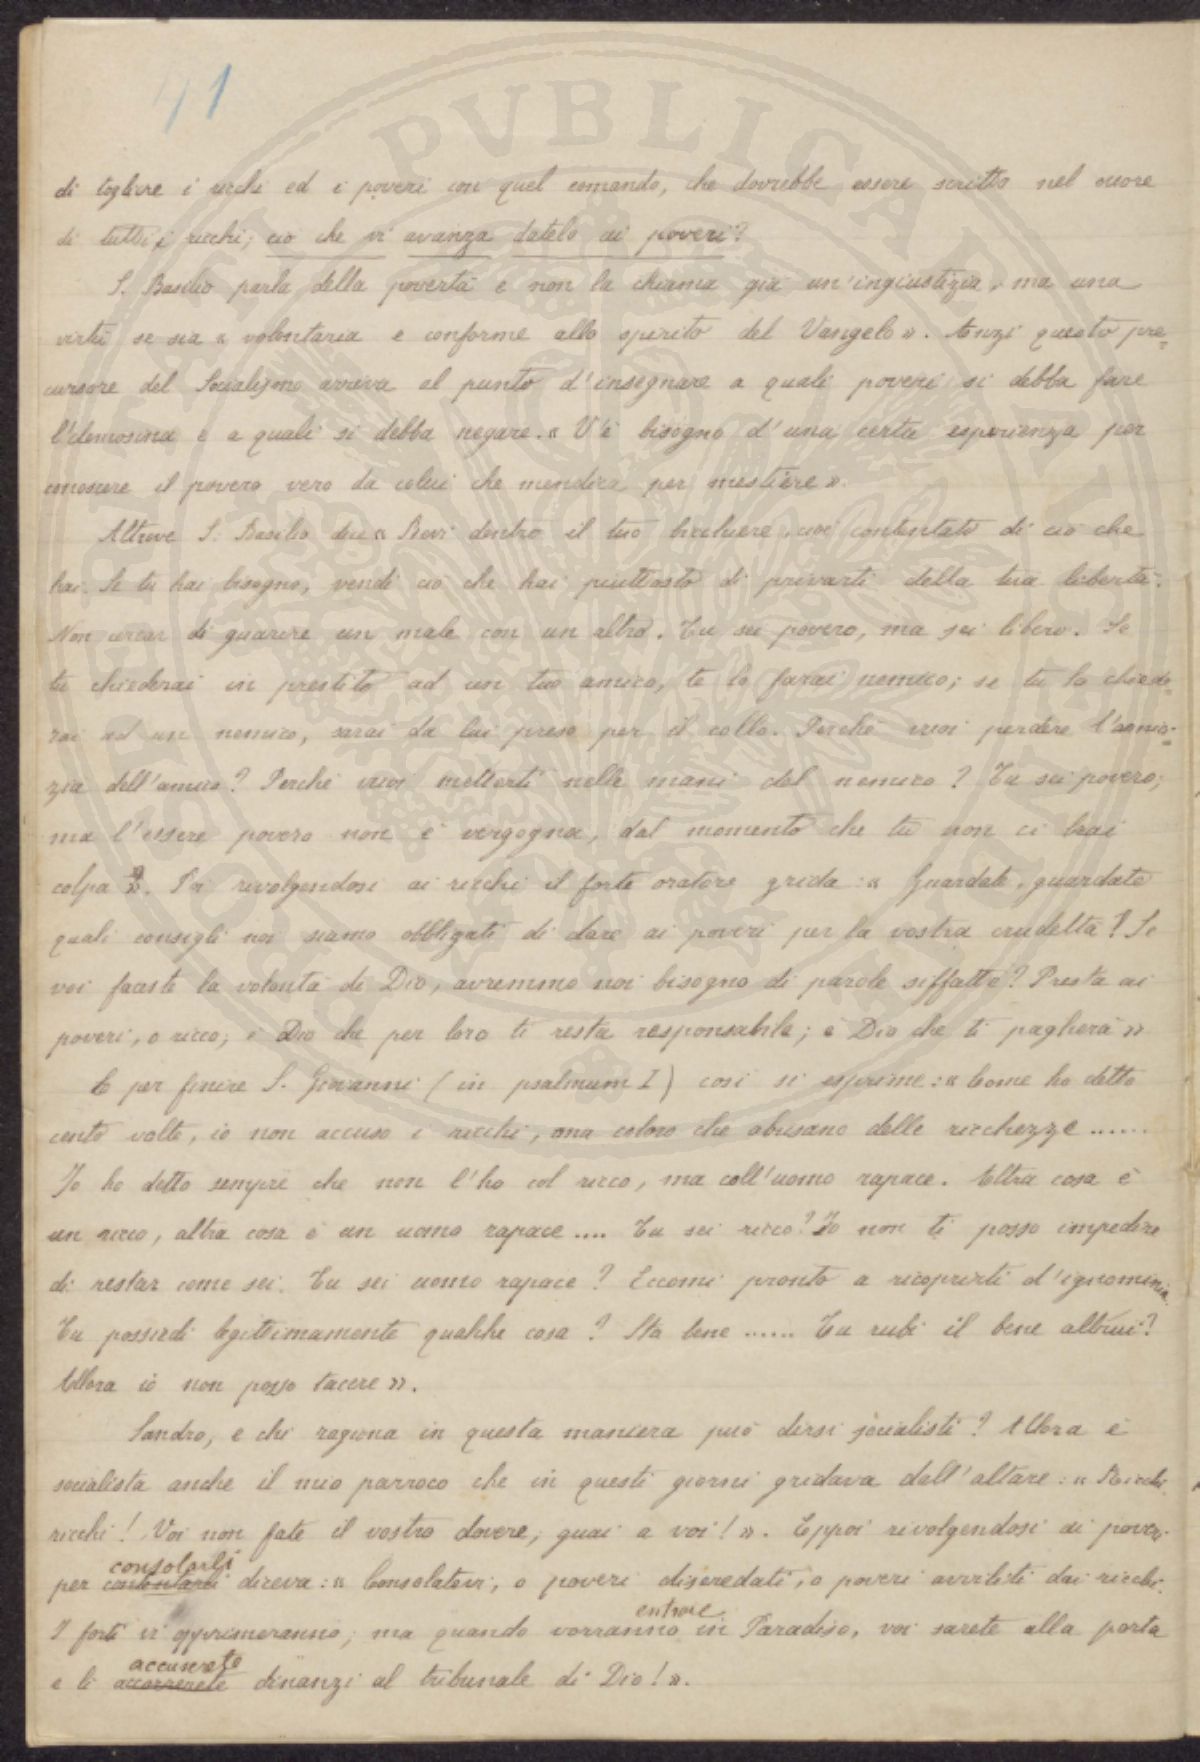 41
di togliere i ricchi ed i poveri con quel comando, che dovrebbe essere scritto nel cuore
di tutti i ricchi; ciò che vi avanza datelo ai poveri?
S. Basilio parla della povertà e non la chiama già un'ingiustizia, ma una
virtù se sia « volontaria e conforme allo spirito del Vangelo ». Anzi questo pre=
cursore del Socialismo arriva al punto d'insegnare a quali poveri si debba fare
l'elemosina e a quali si debba negare. « V'è bisogno d'una certa esperienza per
conoscere il povero vero da colui che mendica per mestiere ».
Altrove S. Basilio dice « Bevi dentro il tuo bicchiere, cioè contentati di ciò che
hai. Se tu hai bisogno, vendi ciò che hai piuttosto di privarti della tua libertà.
Non cercar di guarire un male con un altro. Tu sei povero, ma sei libero. Se
tu chiederai in prestito ad un tuo amico, te lo farai nemico; se tu lo chiede=
rai ad un nemico, sarai da lui preso per il collo. Perchè vuoi perdere l'amici=
zia dell'amico? Perchè vuoi metterti nelle mani del nemico? Tu sei povero;
ma l'essere povero non è vergogna, dal momento che tu non ci hai
colpa ». Poi rivolgendosi ai ricchi il forte oratore grida: « Guardate, guardate
quali consigli noi siamo obbligati di dare ai poveri per la vostra crudeltà! Se
voi faceste la volontà di Dio, avremmo noi bisogno di parole siffatte? Presta ai
poveri, o ricco; è Dio che per loro ti resta responsabile; è Dio che ti pagherà »
E per finire S. Giovanni (in psalmum I) così si esprime: « Come ho detto
cento volte, io non accuso i ricchi, ma coloro che abusano delle ricchezze ......
Io ho detto sempre che non l'ho col ricco, ma coll'uomo rapace. Altra cosa è
un ricco, altra cosa è un uomo rapace .... Tu sei ricco? Io non ti posso impedire
di restar come sei. Tu sei uomo rapace? Eccomi pronto a ricoprirti d'ignominia.
Tu possiedi legittimamente qualche cosa? Sta bene ...... Tu rubi il bene altrui?
Allora io non posso tacere ».
Sandro, e chi ragiona in questa maniera può dirsi socialisti? Allora è
socialista anche il mio parroco che in questi giorni gridava dall'altare: « Ricchi,
ricchi! Voi non fate il vostro dovere, guai a voi! ». Eppoi rivolgendosi ai poveri
consolarli
per contentarli diceva: « Consolatevi, o poveri diseredati, o poveri avviliti dai ricchi.
entrare
I forti vi opprimeranno; ma quando vorranno in Paradiso, voi sarete alla porta
accuserete
e li accorrerete dinanzi al tribunale di Dio! ».